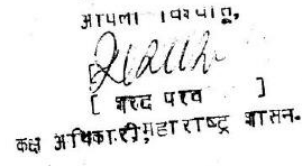 आपला विश्वासू,
[ शरद परब ]
कक्ष अधिकारी, महाराष्ट्र शासन.